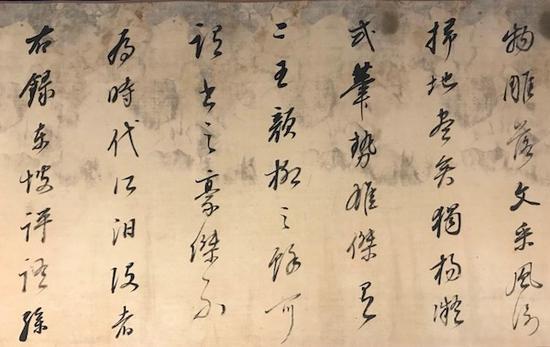 物雕落文采風流
掃地盡矣獨楊凝
式筆勢雄傑有
二王顏柳之餘可
謂書之豪傑不
為時代所汨沒者
右錄東坡評語